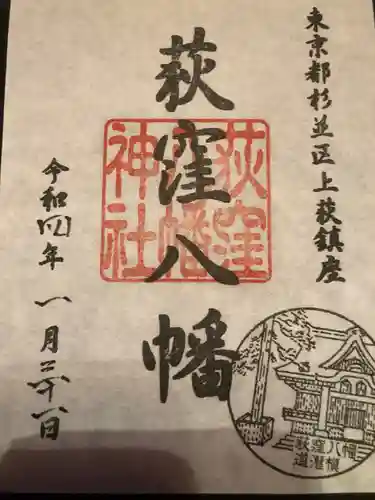 東京都杉並区上荻鎮座
荻窪八幡
荻窪
八幡
神社
令和四年一月二十八日
荻窪八幡
道灌槇